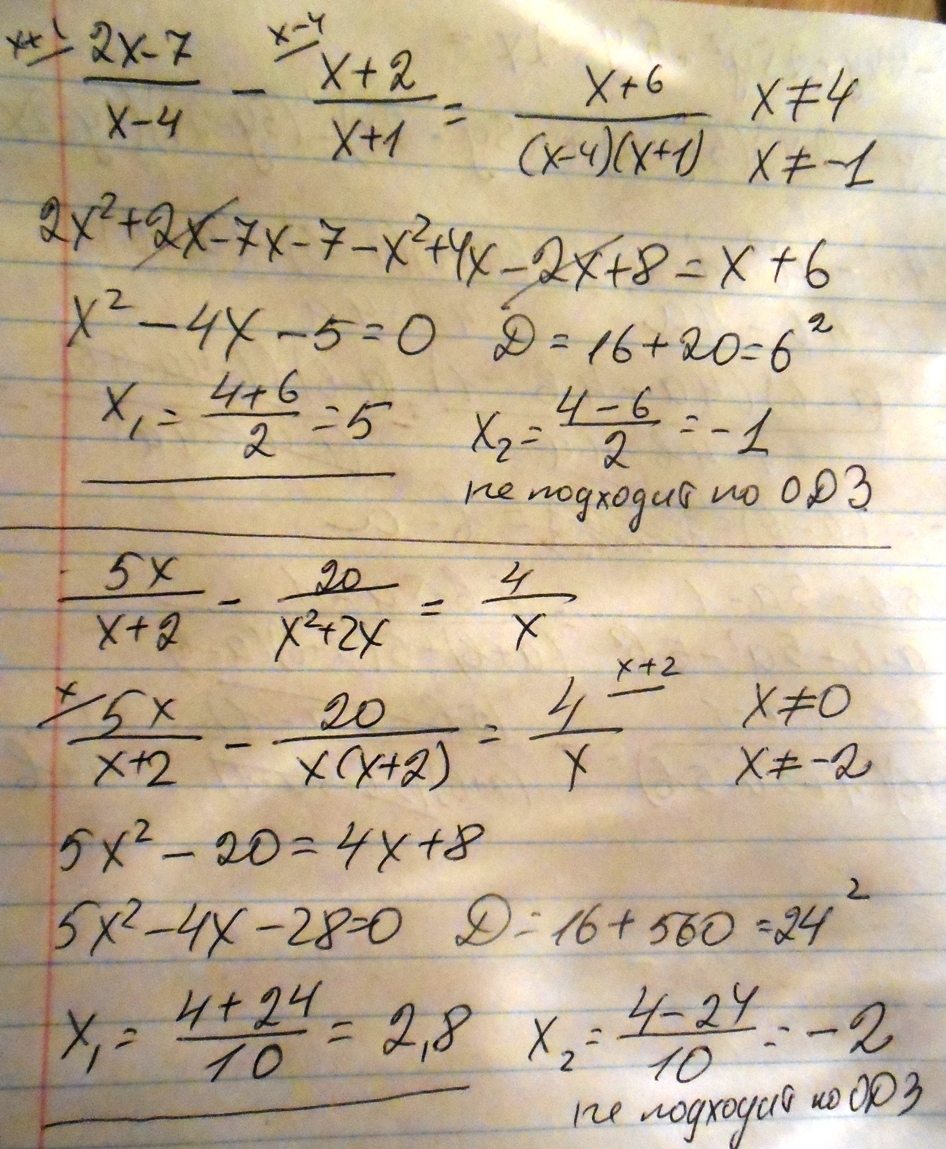 x+1/ (2x-7)/(x-4) - x-4/ (x+2)/(x+1) = (x+6)/((x-4)(x+1)) x≠4 x≠-1
2x²+2x-7x-7-x²+4x-2x+8=x+6
x²-4x-5=0 D=16+20=6²
x₁=(4+6)/2=5 x₂=(4-6)/2=-1
не подходит по ОДЗ
5x/(x+2) - 20/(x²+2x) = 4/x
x/ 5x/(x+2) - 20/(x(x+2)) = 4/x x+2 x≠0 x≠-2
5x²-20=4x+8
5x²-4x-28=0 D=16+560=24²
x₁=(4+24)/10=2,8 x₂=(4-24)/10=-2
не подходит по ОДЗ